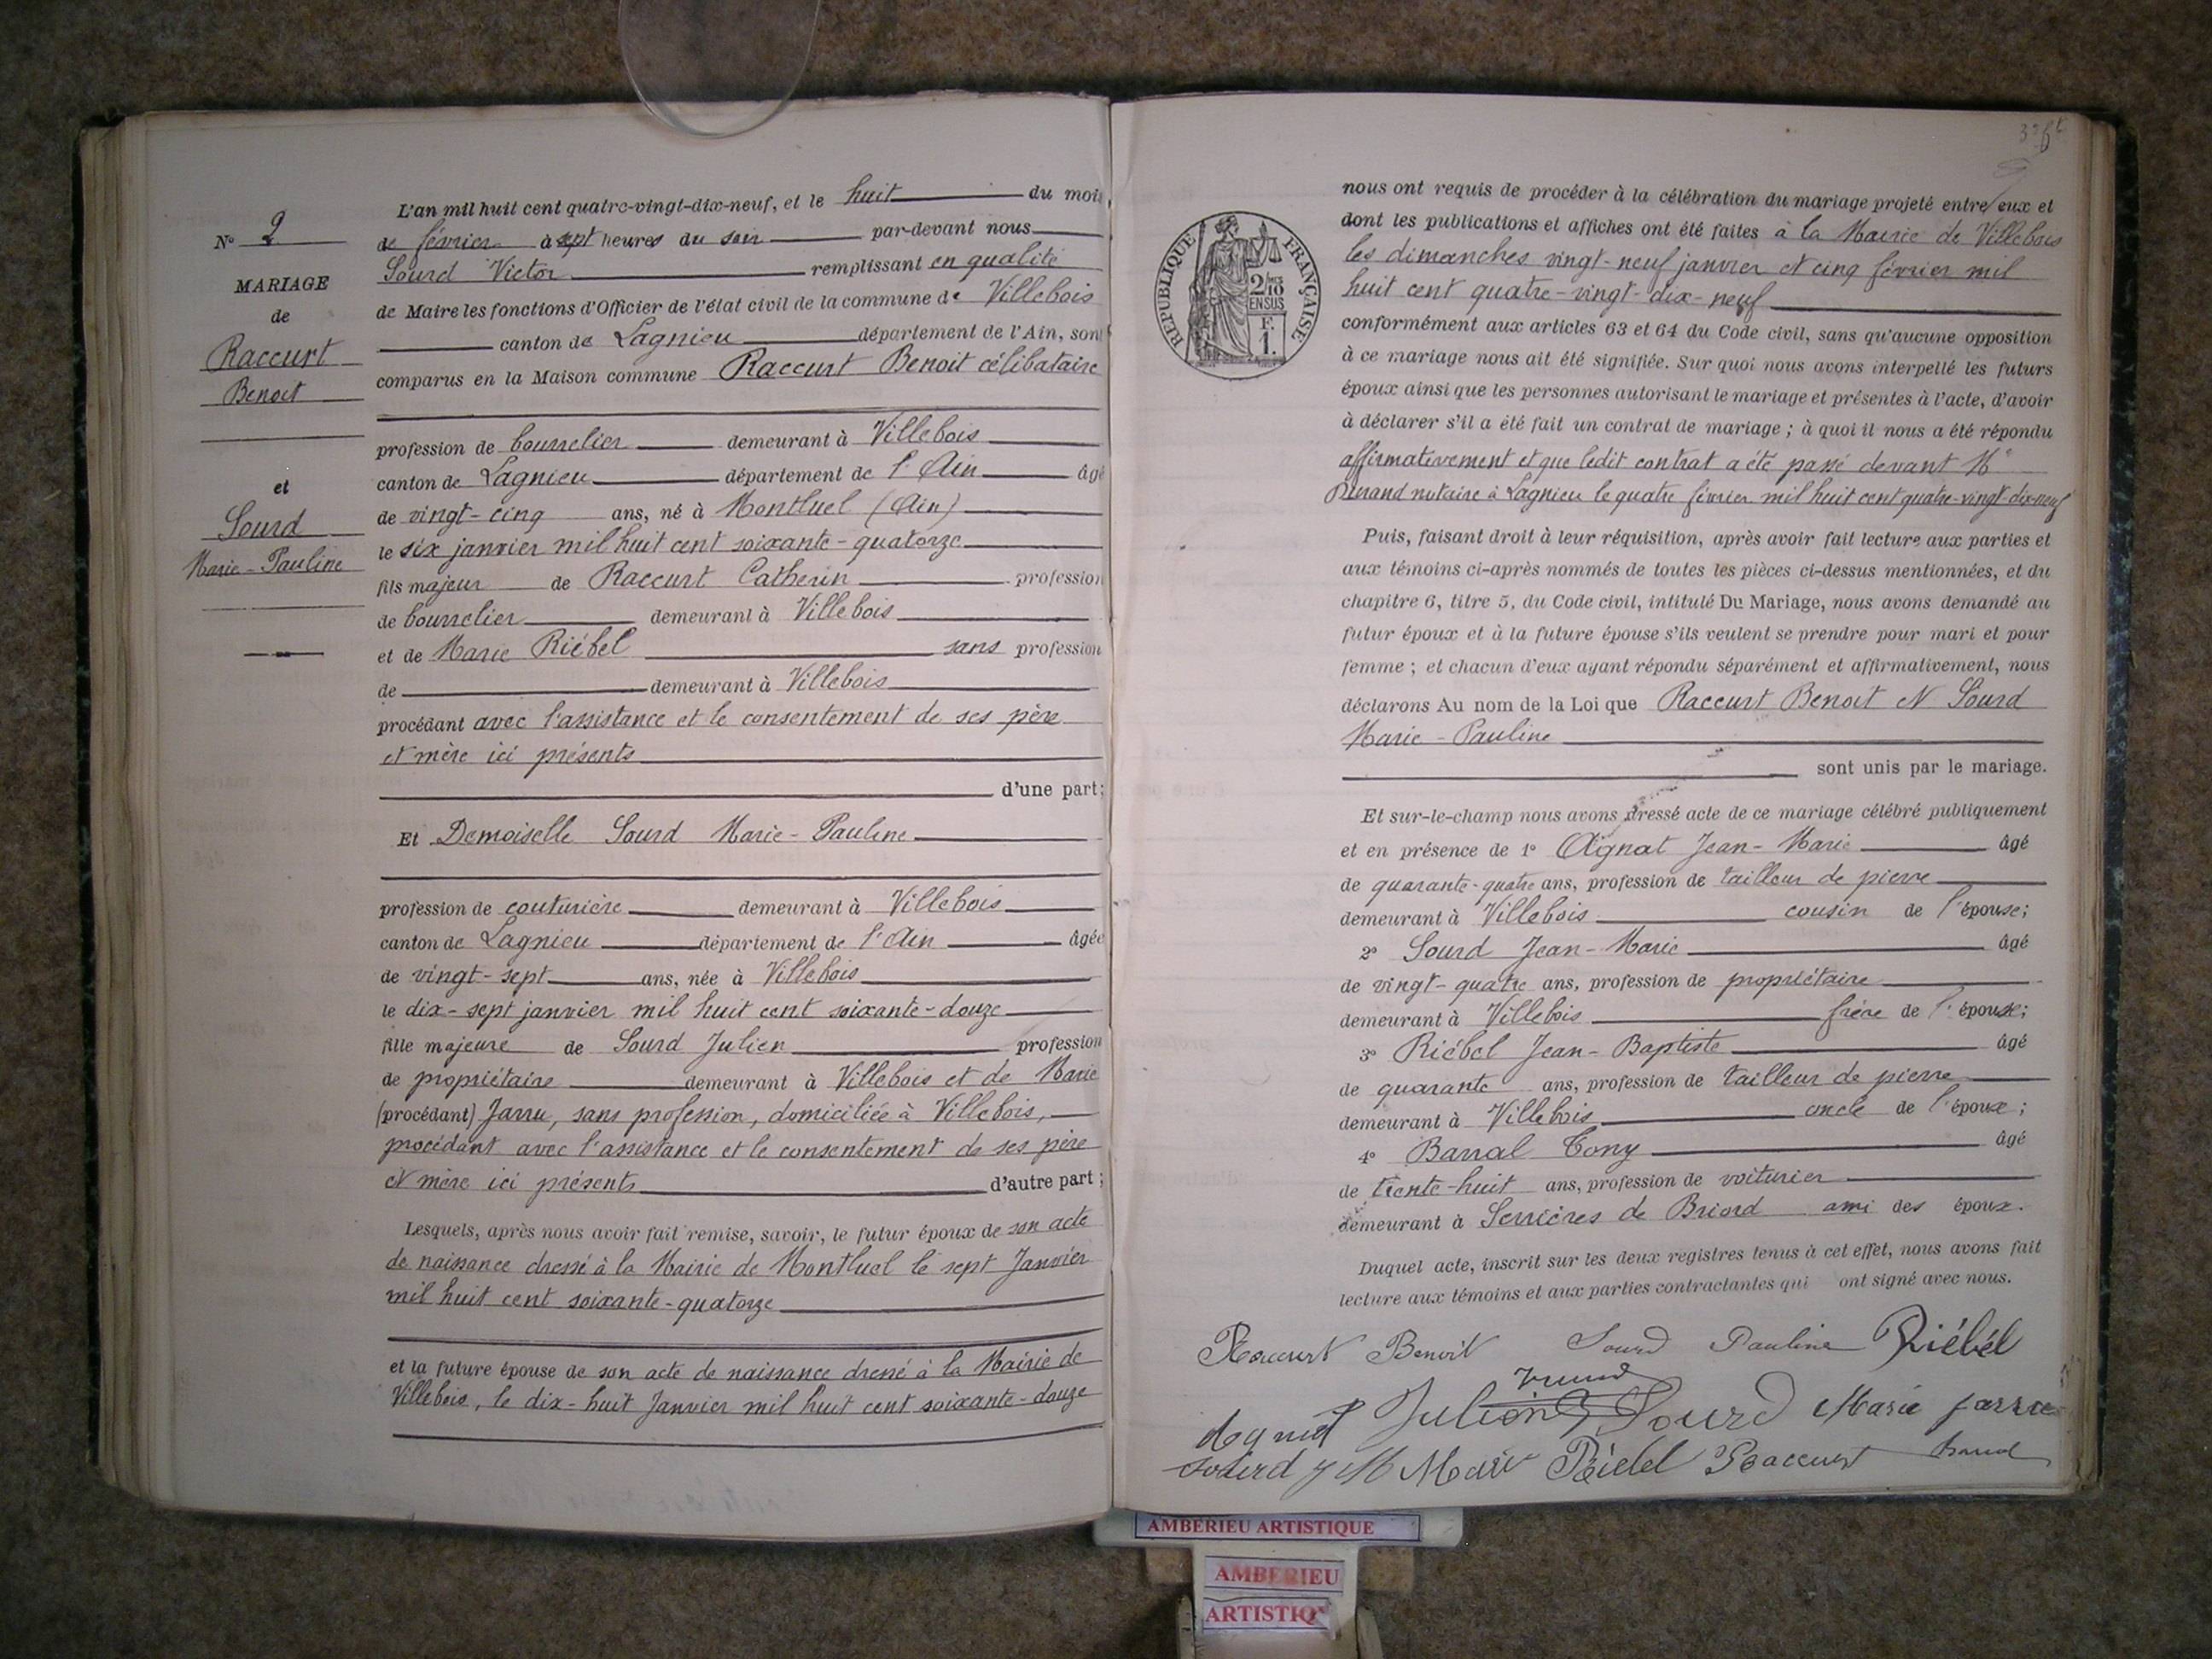 N° 2
MARIAGE
de
Raccurt
Benoit
et
Sourd
Marie-Pauline
L'an mil huit cent quatre-vingt-dix-neuf, et le huit du mois
de février à sept heures du soir par-devant nous
Sourd Victor remplissant en qualité
de Maire les fonctions d'Officier de l'état civil de la commune de Villebois
canton de Lagnieu département de l'Ain, sont
comparus en la Maison commune Raccurt Benoit célibataire
profession de bourrelier demeurant à Villebois
canton de Lagnieu département de l'Ain âgé
de vingt-cinq ans, né à Montluel (Ain)
le six janvier mil huit cent soixante-quatorze
fils majeur de Raccurt Catherin profession
de bourrelier demeurant à Villebois
et de Marie Riébel sans profession
de demeurant à Villebois
procédant avec l'assistance et le consentement de ses père
et mère ici présents
d'une part;
Et Demoiselle Sourd Marie-Pauline
profession de couturière demeurant à Villebois
canton de Lagnieu département de l'Ain âgée
de vingt-sept ans, née à Villebois
le dix-sept janvier mil huit cent soixante-douze
fille majeure de Sourd Julien profession
de propriétaire demeurant à Villebois et de Marie
(procédant) Jarru, sans profession, domiciliée à Villebois,
procédant avec l'assistance et le consentement de ses père
et mère ici présents d'autre part;
Lesquels, après nous avoir fait remise, savoir, le futur époux de son acte
de naissance dressé à la Mairie de Montluel le sept Janvier
mil huit cent soixante-quatorze
et la future épouse de son acte de naissance dressé à la Mairie de
Villebois, le dix-huit Janvier mil huit cent soixante-douze
RÉPUBLIQUE FRANÇAISE
2/10
EN SUS
F.
1.
nous ont requis de procéder à la célébration du mariage projeté entre eux et
dont les publications et affiches ont été faites à la Mairie de Villebois
les dimanches vingt-neuf janvier et cinq février mil
huit cent quatre-vingt-dix-neuf
conformément aux articles 63 et 64 du Code civil, sans qu'aucune opposition
à ce mariage nous ait été signifiée. Sur quoi nous avons interpellé les futurs
époux ainsi que les personnes autorisant le mariage et présentes à l'acte, d'avoir
à déclarer s'il a été fait un contrat de mariage; à quoi il nous a été répondu
affirmativement et que ledit contrat a été passé devant Me
Durand notaire à Lagnieu le quatre février mil huit cent quatre-vingt-dix-neuf
Puis, faisant droit à leur réquisition, après avoir fait lecture aux parties et
aux témoins ci-après nommés de toutes les pièces ci-dessus mentionnées, et du
chapitre 6, titre 5, du Code civil, intitulé Du Mariage, nous avons demandé au
futur époux et à la future épouse s'ils veulent se prendre pour mari et pour
femme; et chacun d'eux ayant répondu séparément et affirmativement, nous
déclarons Au nom de la Loi que Raccurt Benoit et Sourd
Marie-Pauline
sont unis par le mariage.
Et sur-le-champ nous avons dressé acte de ce mariage célébré publiquement
et en présence de 1° Agnat Jean-Marie âgé
de quarante-quatre ans, profession de tailleur de pierre
demeurant à Villebois cousin de l'épouse;
2° Sourd Jean-Marie âgé
de vingt-quatre ans, profession de propriétaire
demeurant à Villebois frère de l'épouse;
3° Riébel Jean-Baptiste âgé
de quarante ans, profession de tailleur de pierre
demeurant à Villebois oncle de l'époux;
4° Barral Tony âgé
de trente-huit ans, profession de voiturier
demeurant à Serrières de Briord ami des époux.
Duquel acte, inscrit sur les deux registres tenus à cet effet, nous avons fait
lecture aux témoins et aux parties contractantes qui ont signé avec nous.
Raccurt Benoit Sourd Pauline Riébél
Julien Sourd Marie Jarru
Sourd J M Marie Riébel Raccurt Barral
AMBERIEU ARTISTIQUE
AMBERIEU
ARTISTIQ